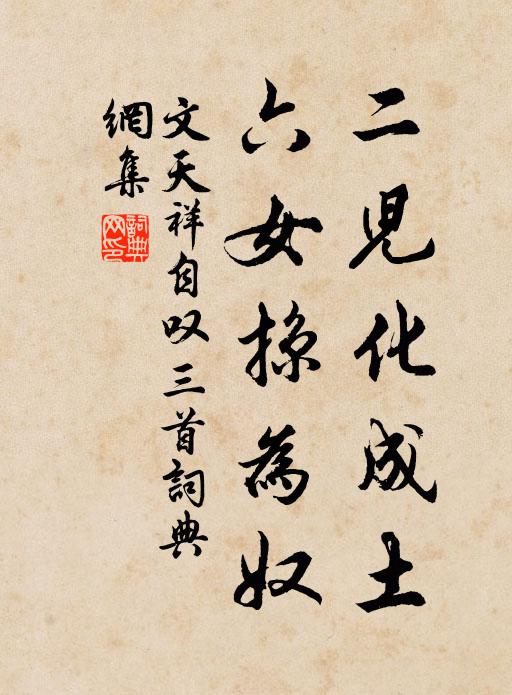 二児化成土
六女掠為奴
文天祥自叹三首詞典
網集
詞典
网印